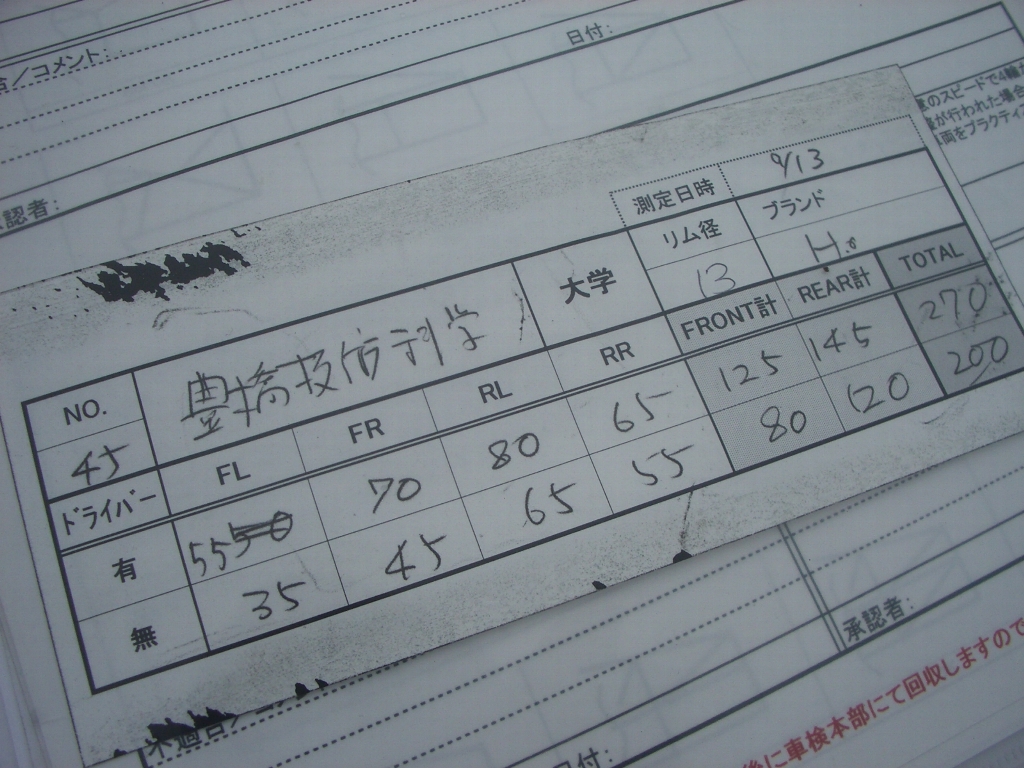 /コメント:
日付:
認者:
のスピードで4輪
が行われた場合
両をプラクティ
測定日時 9/13
リム径 ブランド
13 H.
NO. 豊橋技術科学 大学
45
FRONT計 REAR計 TOTAL
ドライバー FL FR RL RR
有 55 50 70 80 65 125 145 270
無 35 45 65 55 80 120 200
不適合
承認者:
付:
後に車検本部にて回収しますので